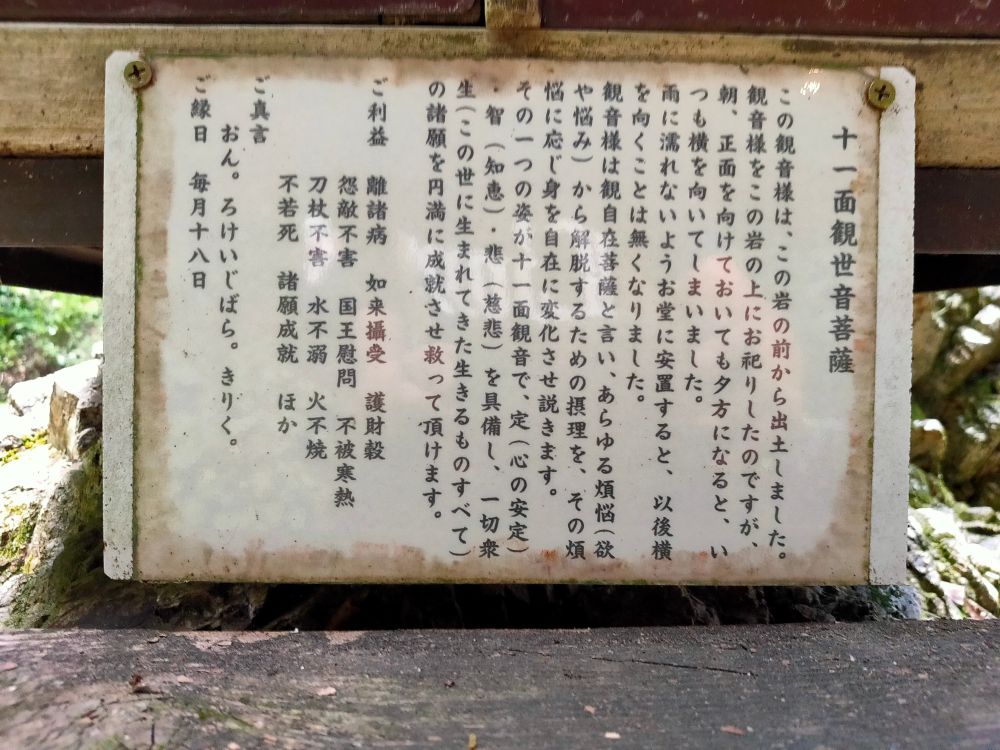 十一面観世音菩薩
この観音様は、この岩の前から出土しました。
観音様をこの岩の上にお祀りしたのですが、
朝、正面を向けておいても夕方になると、い
つも横を向いてしまいました。
雨に濡れないようお堂に安置すると、以後横
を向くことは無くなりました。
観音様は観自在菩薩と言い、あらゆる煩悩(欲
や悩み)から解脱するための摂理を、その煩
悩に応じ身を自在に変化させ説きます。
その一つの姿が十一面観音で、定(心の安定)
・智(知恵)・悲(慈悲)を具備し、一切衆
生(この世に生まれてきた生きるものすべて)
の諸願を円満に成就させ救って頂けます。
ご利益 離諸病 如来攝受 護財穀
怨敵不害 国王慰問 不被寒熱
刀杖不害 水不溺 火不焼
不若死 諸願成就 ほか
ご真言
おん。ろけいじばら。きりく。
ご縁日 毎月十八日